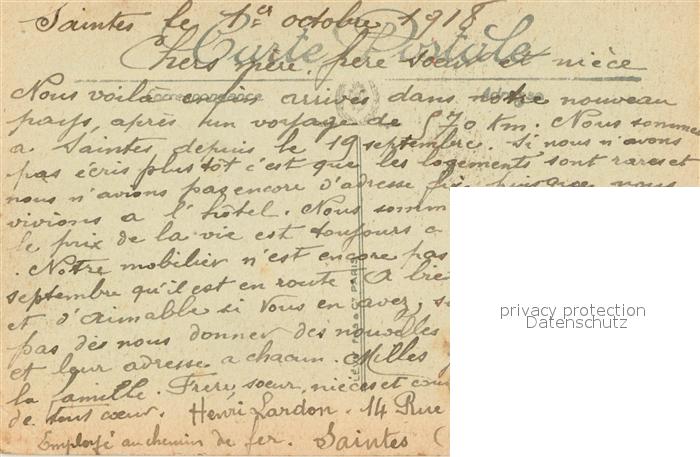 Saintes le 1er octobre 1918
Carte Postale
Chers père, frère soeur et nièce
Correspondance Adresse
Nous voilà enfin arrivés dans notre nouveau
pays, après un voyage de 570 Km. Nous sommes
a Saintes depuis le 19 septembre. Si nous n'avons
pas écris plus tôt c'est que les logements sont rares et
nous n'avions pas encore d'adresse fixe puisque nous
vivions a l'hôtel. Nous somm
le prix de la vie est toujours a
. Notre mobilier n'est encore pas
septembre qu'il est en route. A bie
et d'aimable si vous en avez, s
pas de nous donner des nouvelles
et leur adresse a chacun. Milles
la famille. Frère, soeur, nièces et cou
de tout coeur. Henri Lardon. 14 Rue
Employé au chemin de fer. Saintes (
PARIS
privacy protection
Datenschutz